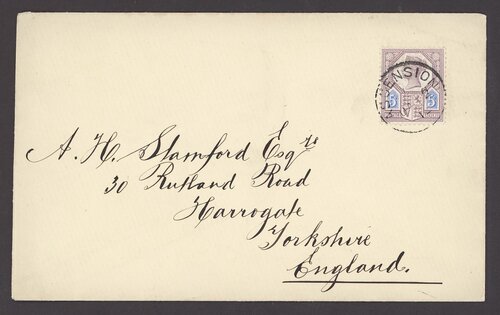 ASCENSION
5 5
A. H. Stamford Esqre
30 Rutland Road
Harrogate
Yorkshire
England.